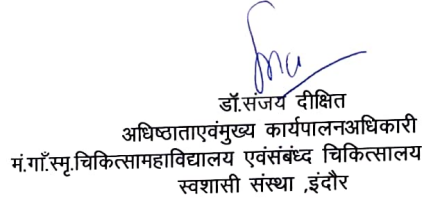 डॉ.संजय दीक्षित
अधिष्ठाताएवंमुख्य कार्यपालनअधिकारी
मं.गाँ.स्मृ.चिकित्सामहाविद्यालय एवंसंबंध्द चिकित्सालय
स्वशासी संस्था ,इंदौर